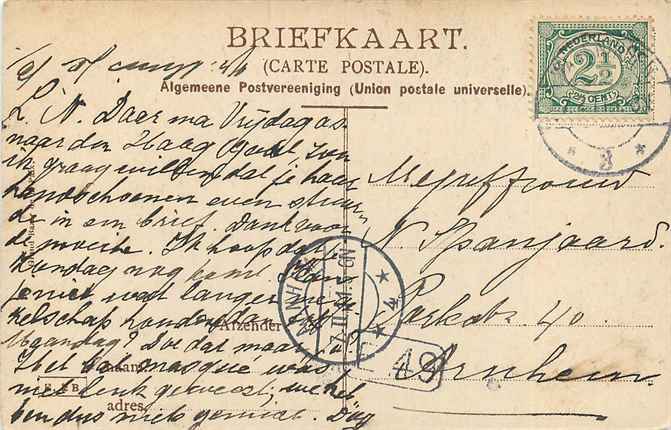 BRIEFKAART.
(CARTE POSTALE).
Algemeene Postvereeniging (Union postale universelle).
NEDERLAND
2½
2½ CENT
L. N. Daar ma Vrijdag as.
naar den Haag gaat, zou
ik graag willen dat je haar
handschoenen even stuur
de in een brief. Dank voor
de moeite. Ik hoop dat je
Zondag nog komt.
niet wat langer in
kelschap houden
Maandag? Doe dat maar.
Het bal masqué was
leuk geweest; we heb
ben dus niets gemist. Dag
Afzender
Naam
adres
Mejuffrouw
N Spanjaard.
Parkstr. 40
Arnhem.
ARNHEM
49